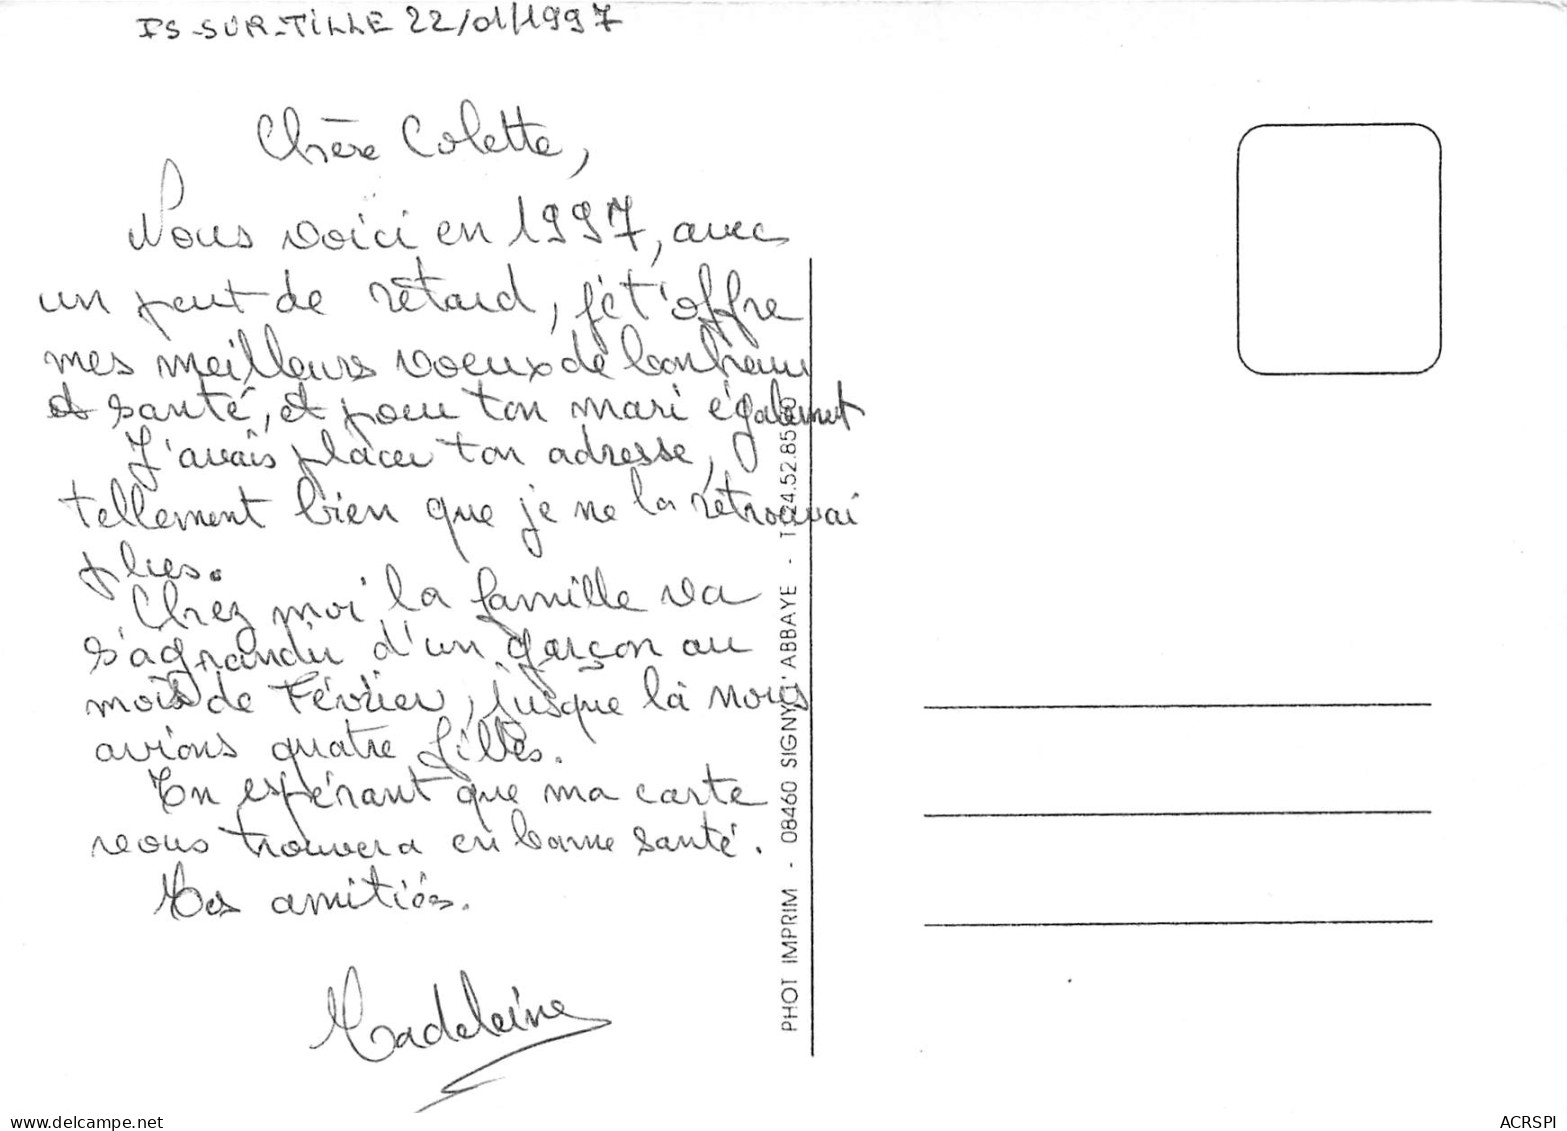 IS-SUR-TILLE 22/01/1997
Chère Colette,
Nous voici en 1997, avec
un peut de retard, je t'offre
mes meilleurs voeux de bonheur
et santé, et pour ton mari également
J'avais placer ton adresse,
tellement bien que je ne la retrouvai
plus.
Chez moi la famille va
s'agrandir d'un garçon au
mois de Février, jusque là nous
avions quatre filles.
En espérant que ma carte
vous trouvera en bonne santé.
Mes amitiés.
Madeleine
PHOT IMPRIM - 08460 SIGNY L'ABBAYE - T 24.52.85
delcampe.net
ACRSPI